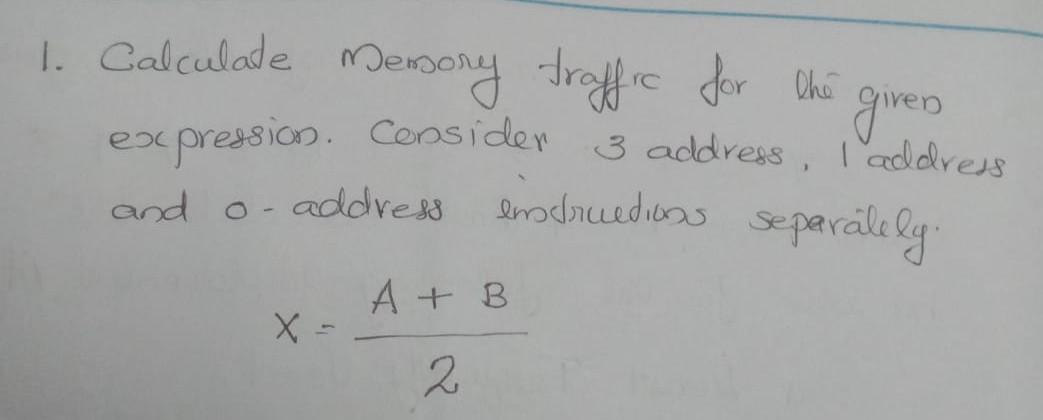 1. Calculate Memory traffic for the given
expression. Consider 3 address, 1 address
and 0-address instructions separately.
X = A + B
2